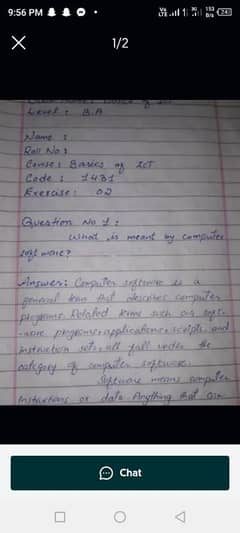 9:56 PM
Vo LTE 3G 153 B/s 24
1/2
Level : B.A
Name :
Roll No :
Course : Basics of ICT
Code : 1431
Exercise : 02
Question No 1 :
What is meant by computer
software?
Answer: Computer software is a
general term that describes computer
programs. Related terms such as soft-
-ware programs, applications, scripts, and
instruction sets, all fall under the
category of computer software.
Software means computer
instructions or data. Anything that can
Chat